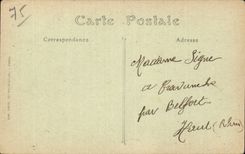 75
Carte Postale
Correspondance
Adresse
Madame Signe
a Cravanche
par Belfort
Haut (Rhin)